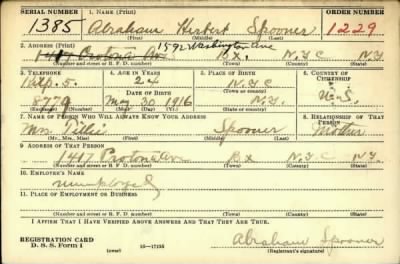 SERIAL NUMBER 1. NAME (Print) ORDER NUMBER
1385 Abraham Herbert Spooner 1229
(First) (Middle) (Last)
2. ADDRESS (Print) 1592 Washington Ave
1417 Crotona Av Bx. N.Y.C N.Y.
(Number and street or R. F. D. number) (Town) (County) (State)
3. TELEPHONE 4. AGE IN YEARS 5. PLACE OF BIRTH 6. COUNTRY OF CITIZENSHIP
5. 24 N.Y.C
DATE OF BIRTH (Town or county)
8779 May 30 1916 N.Y. U.S.
(Exchange) (Number) (Mo.) (Day) (Yr.) (State or country)
7. NAME OF PERSON WHO WILL ALWAYS KNOW YOUR ADDRESS 8. RELATIONSHIP OF THAT PERSON
Mrs. Tillie Spooner Mother
(Mr., Mrs., Miss) (First) (Middle) (Last)
9. ADDRESS OF THAT PERSON
1417 Crotona Av Bx N.Y.C N.Y.
(Number and street or R. F. D. number) (Town) (County) (State)
10. EMPLOYER'S NAME
unemployed
11. PLACE OF EMPLOYMENT OR BUSINESS
(Number and street or R. F. D. number) (Town) (County) (State)
I AFFIRM THAT I HAVE VERIFIED ABOVE ANSWERS AND THAT THEY ARE TRUE.
REGISTRATION CARD
D. S. S. Form 1 (over) 16—17105 Abraham Spooner
(Registrant's signature)